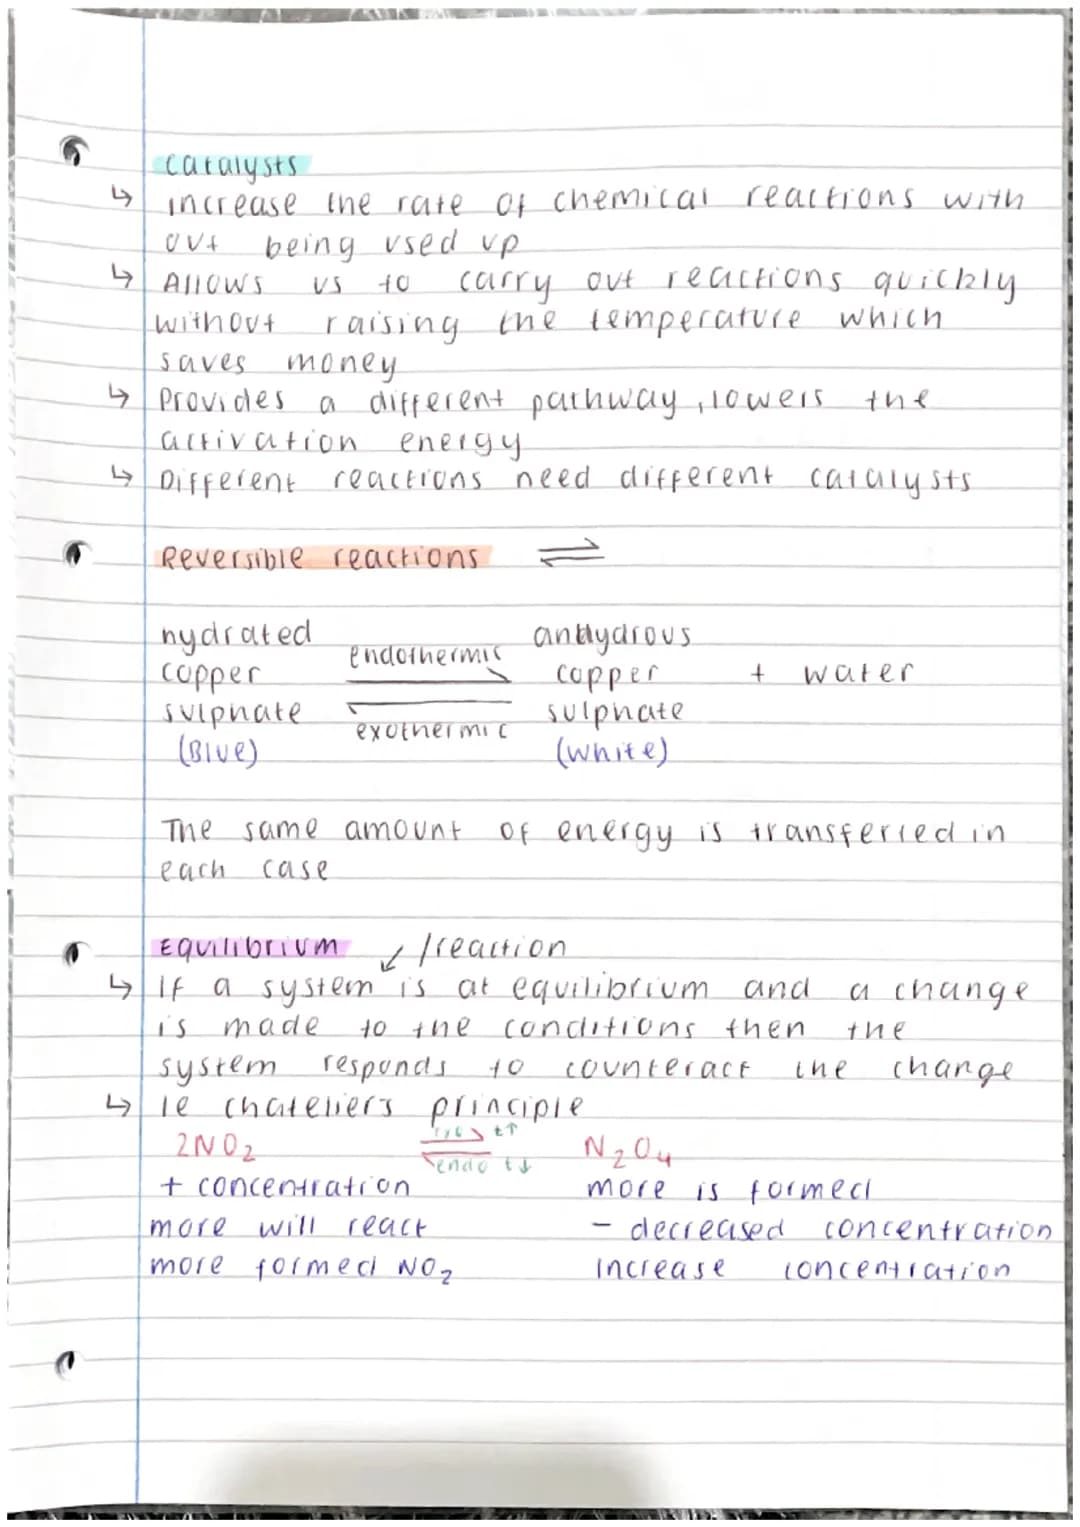 catalysts
↳ increase the rate of chemical reactions with
out being used up
↳ Allows us to carry out reactions quickly
without raising the temperature which
saves money
↳ Provides a different pathway, lowers the
activation energy
↳ Different reactions need different catalysts
Reversible reactions ⇌
hydrated endothermic anhydrous
copper ⇌ copper + water
sulphate exothermic sulphate
(Blue) (white)
The same amount of energy is transferred in
each case
Equilibrium ↙ /reaction
↳ If a system is at equilibrium and a change
is made to the conditions then the
system responds to counteract the change
↳ le chateliers principle
2NO₂ ⇌ t↑ N₂O₄
endo t↓
+ concentration more is formed
more will react - decreased concentration
more formed NO₂ increase concentration